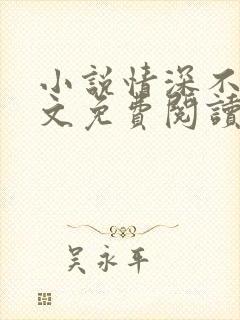 小說情深不
文免費閱讀
吳永平